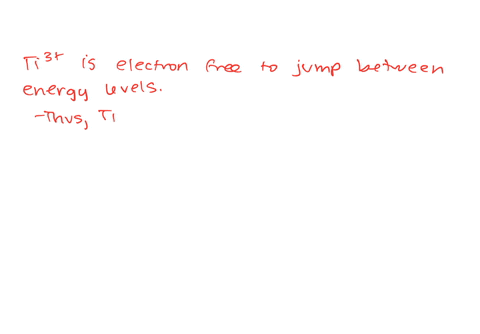 Ti³⁺ is electron free to jump between
energy levels.
-Thus, Ti